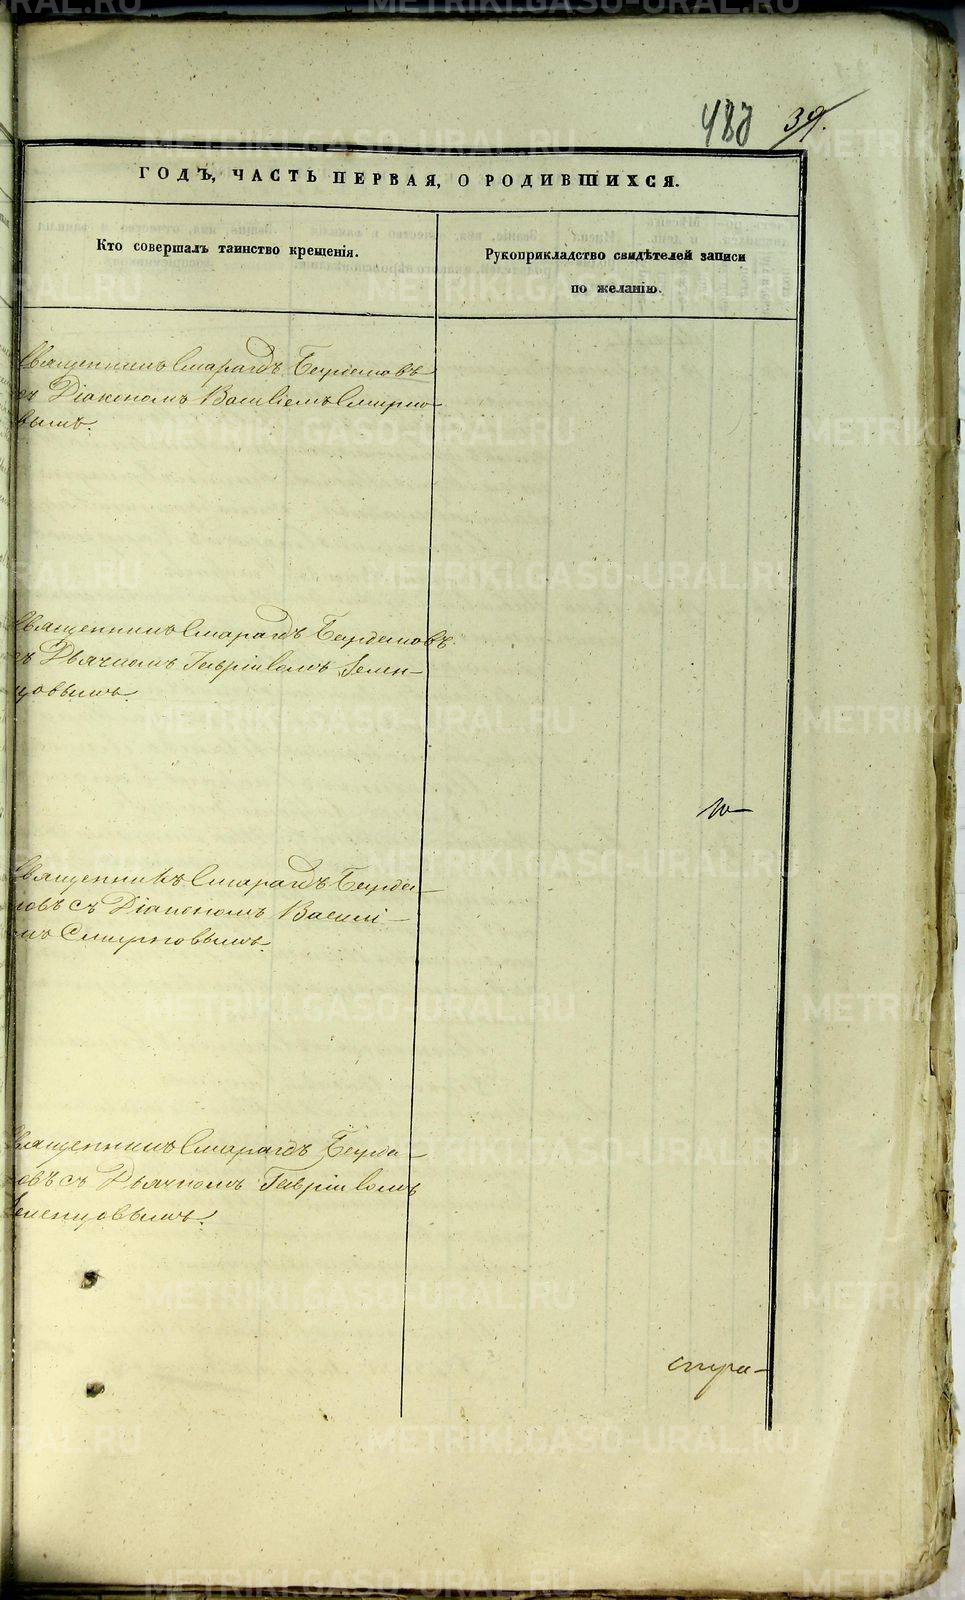 488 39.
ГОДЪ, ЧАСТЬ ПЕРВАЯ, О РОДИВШИХСЯ.
Кто совершалъ таинство крещенія.
Рукоприкладство свидѣтелей записи
по желанію.
Священникъ Смарагдъ
съ Діакономъ Василіемъ Смирно
вымъ.
Священникъ Смарагдъ
съ Дьячкомъ Гавріиломъ Земен-
цовымъ.
Священникъ Смарагдъ
новъ съ Діакономъ Василі-
емъ Смирновымъ.
Священникъ Смарагдъ
новъ съ Дьячкомъ Гавріиломъ
Земенцовымъ.
стра-
METRIKI.GASO-URAL.RU